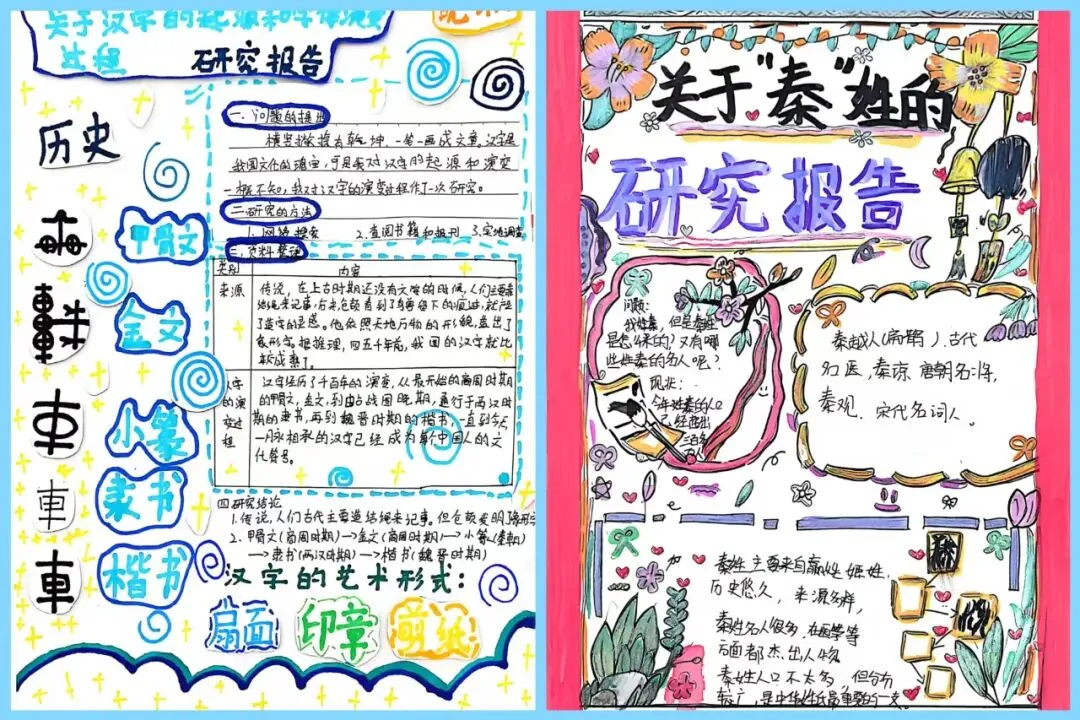 关于汉字的起源和字体演变
过程 研究报告
历史
一、问题的提出
横竖撇捺有乾坤，一笔一画成文章，汉字是
我国文化的瑰宝，可是我对汉字的起源和演变
一概不知，我对汉字的演变过程作了一次研究。
二、研究的方法
1.网络搜索 2.查阅书籍和报刊 3.实地调查
三、资料整理
类别 内容
来源
传说，在上古时期还没有文字的时候，人们主要靠
结绳来记事，后来，仓颉看到鸟兽留下的痕迹，就产
生了造字的灵感。他依照天地万物的形貌，造出了
象形字，据推理，四五千年前，我国的汉字就比
较成熟了。
汉字的演变过程
汉字经历了千百年的演变，从最开始的商周时期
的甲骨文，金文，到由战国晚期，通行于两汉时
期的隶书，再到魏晋时期的楷书，一直到今天
一脉相承的汉字已经成为每个中国人的文
化符号。
四、研究结论
1.传说，人们古代主要造结绳来记事。但仓颉发明了象形字
2.甲骨文(商周时期)→金文(商周时期)→小篆(秦朝)
→隶书(两汉时期)→楷书(魏晋时期)
甲骨文
金文
小篆
隶书
車
楷书
車
汉字的艺术形式：
扇面 印章 剪纸
关于"秦"姓的
研究报告
问题：
我姓秦，但是秦姓
是怎么来的？又有哪
些姓秦的名人呢？
现状：
今年姓秦的人口
已经超出
三百多
万人
秦越人(扁鹊)、古代
名医，秦琼 唐朝名将，
秦观、宋代名词人。
秦姓主要来自嬴姓、姬姓
历史悠久，来源多样，
秦姓名人很多，在医学等
方面都杰出人物
秦姓人口不太多 但分布
较广，是中华姓氏最重要的一支